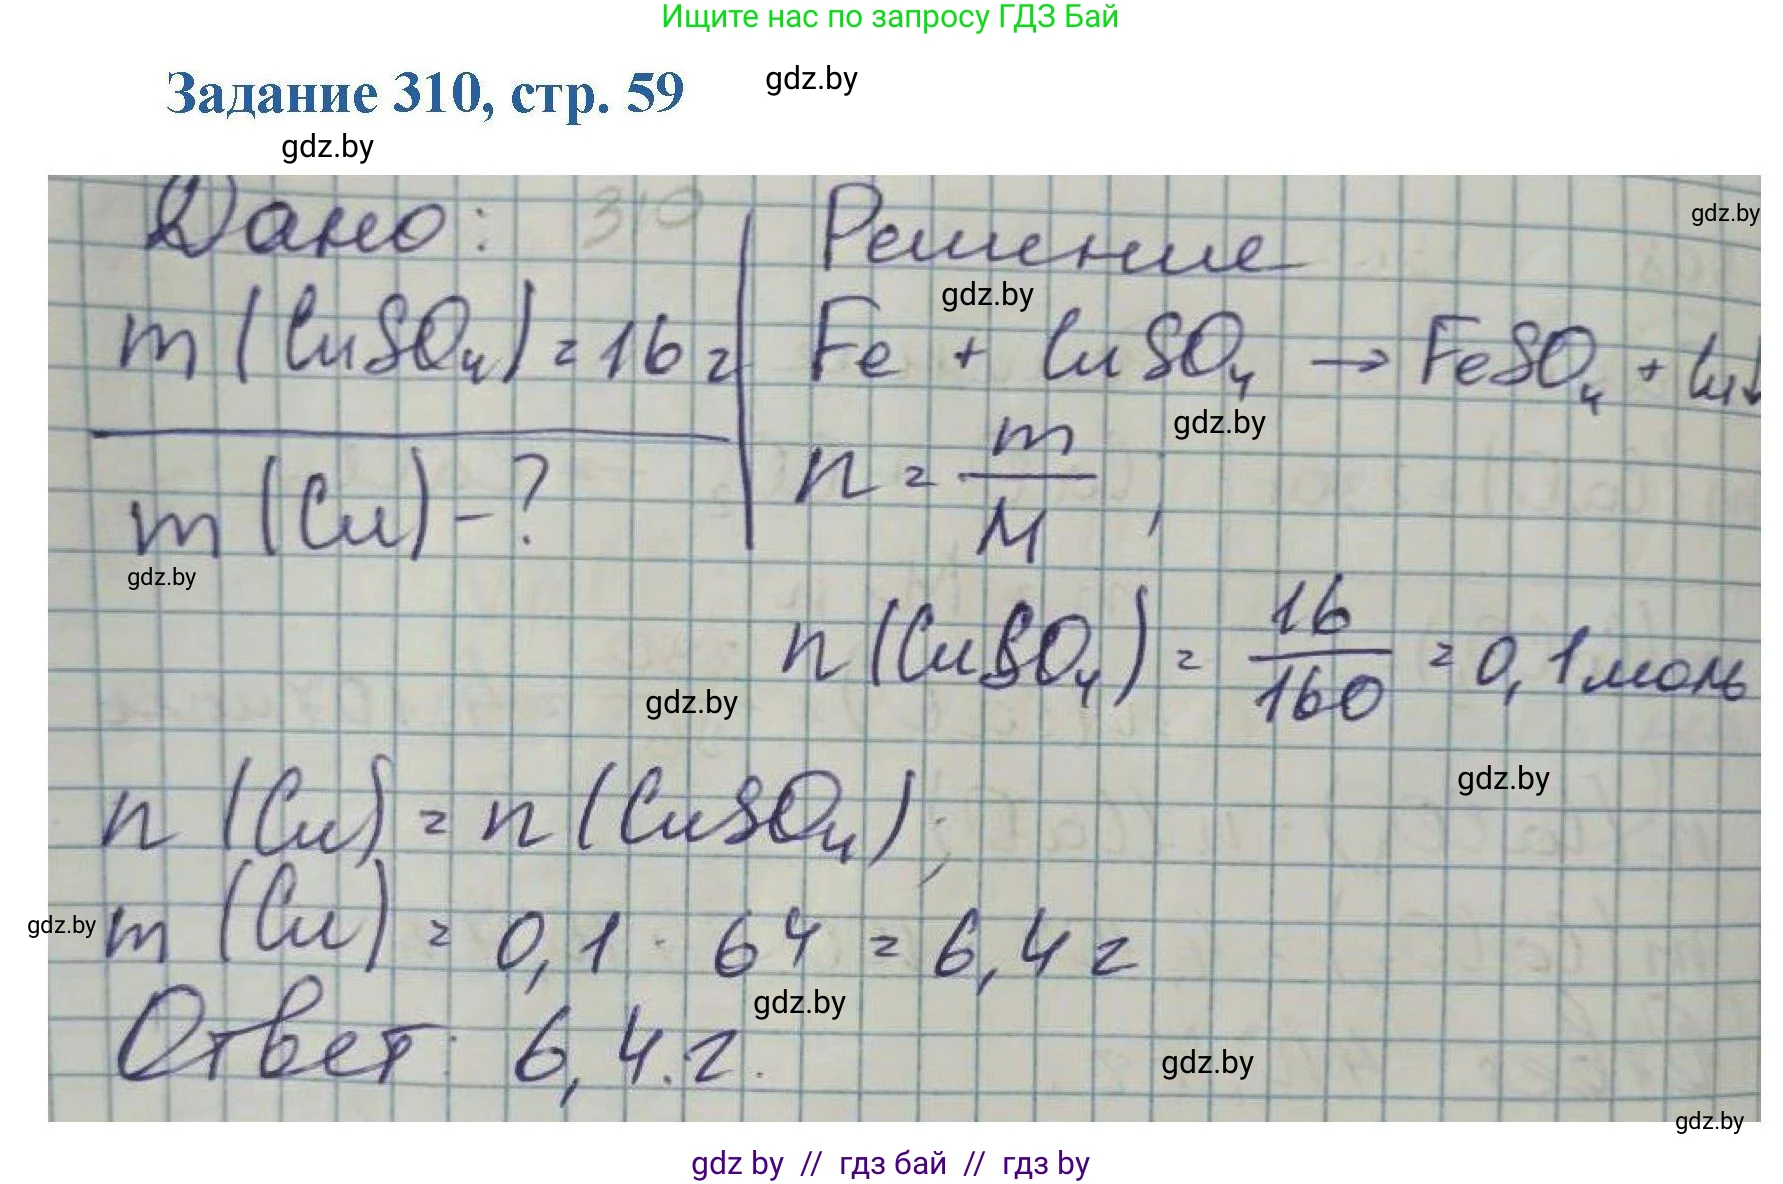 Ищите нас по запросу ГДЗ Бай
Задание 310, стр. 59
gdz.by
gdz.by
Дано: 310
Решение
gdz.by
m (CuSO₄) = 16 г
gdz.by
Fe + CuSO₄ → FeSO₄ + Cu↓
gdz.by
m (Cu) - ?
n = m / M ,
gdz.by
n (CuSO₄) = 16 / 160 = 0,1 моль
gdz.by
gdz.by
n (Cu) = n (CuSO₄);
gdz.by
m (Cu) = 0,1 · 64 = 6,4 г
gdz.by
Ответ: 6,4.г.
gdz.by
gdz.by
gdz by // гдз бай // гдз by